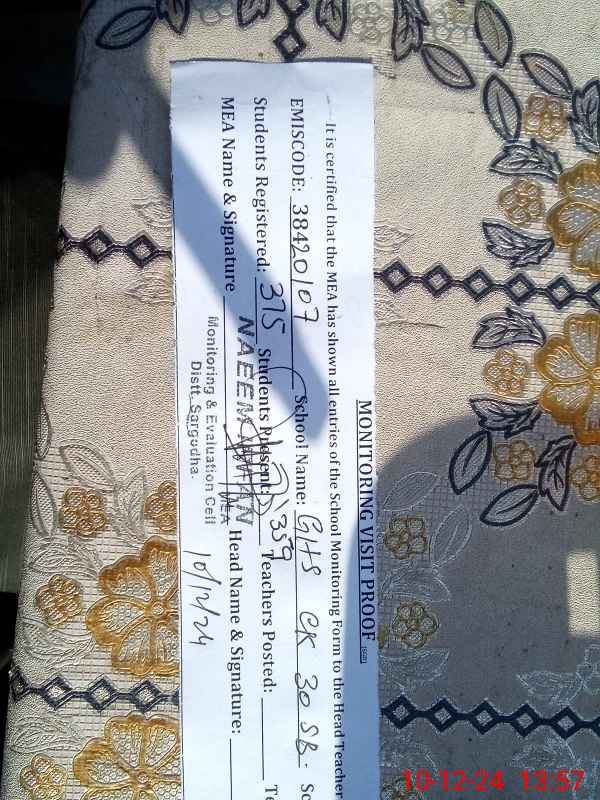 MONITORING VISIT PROOF (SGD)
It is certified that the MEA has shown all entries of the School Monitoring Form to the Head Teacher
EMISCODE: 38420107 School Name: GHS CK 30 SB. Sc
Students Registered: 375 Students Present: 359 Teachers Posted: Te
MEA Name & Signature NAEEM Head Name & Signature:
MEA
Monitoring & Evaluation Cell
Distt. Sargodha.
10/12/24
10-12-24 13:57